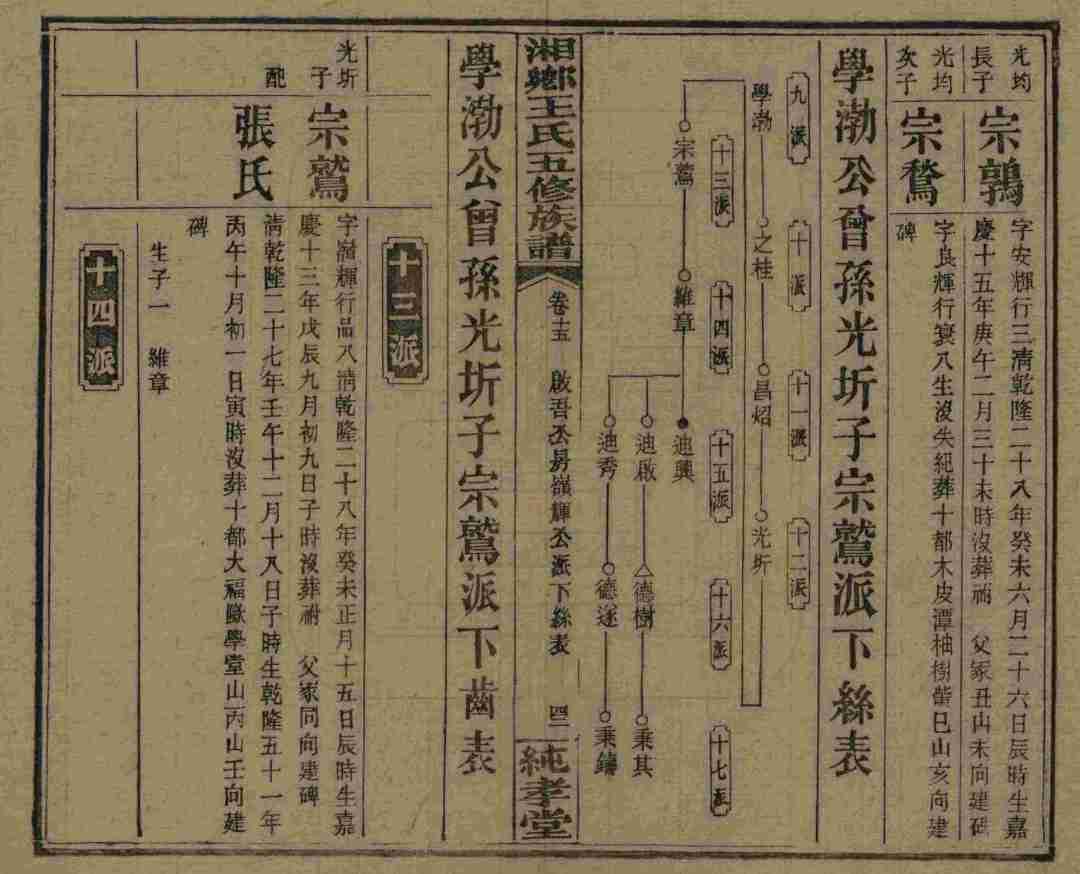 光均
長子
宗鶉
字安輝行三清乾隆二十八年癸未六月二十六日辰時生嘉
慶十五年庚午二月三十未時沒葬祔 父冢丑山未向建碑
光均
次子
宗鶩
字良輝行寞八生沒失紀葬十都木皮潭柚樹蛍巳山亥向建
碑
學渤公曾孫光圻子宗鷲派下絲表
九派
十派
十一派
十二派
學渤
之桂
昌炤
光圻
十三派
十四派
十五派
十六派
十七派
宗鷲
維章
迪興
迪啟
德樹
秉其
迪秀
德遂
秉鑄
湘鄉王氏五修族譜
卷十五 啟吾公房嶺輝公派下絲表
純孝堂
學渤公曾孫光圻子宗鷲派下齒表
十三派
光圻
子
宗鷲
字嶺輝行品八清乾隆二十八年癸未正月十五日辰時生嘉
慶十三年戊辰九月初九日子時沒葬祔 父冢同向建碑
配
張氏
清乾隆二十七年壬午十二月十八日子時生乾隆五十一年
丙午十月初一日寅時沒葬十都大福學堂山丙山壬向建
碑
生子一 維章
十四派